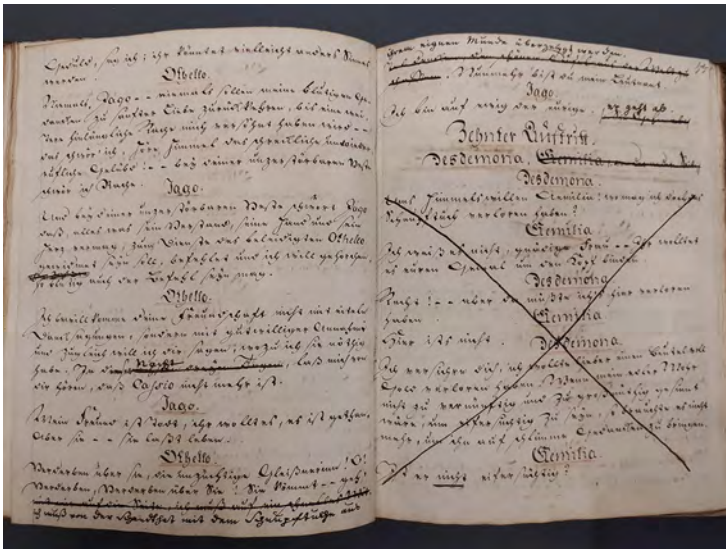 Geduld, sag ich; ihr könntet vielleicht anders Sinnes
werden.
Othello.
Niemals, Jago -- niemals sollen meine blutigen Ge-
danken zu sanfter Liebe zurückkehren, bis eine
Rache mich versöhnt haben wird --
das schwör ich. Hier Himmel das
Gelübd -- bey deiner unzerstörbaren Veste
schwör ich Rache.
Jago.
Und bey deiner unzerstörbaren Veste schwört Jago
daß, alles was sein Verstand, seine Hand und sein
Herz vermag, zum Dienste des beleidigten Othello
gewidmet seyn soll, befehlet und ich will gehorchen,
so blutig auch der Befehl seyn mag.
Othello.
Ich bewillkomme deine Freundschaft nicht mit eiteln
Danksagungen, sondern mit gutwilliger Annahme
und zugleich will ich dir sagen, wozu ich sie nöthig
habe. In Nacht laß mich von
dir hören, daß Cassio nicht mehr ist.
Jago.
Mein Freund ist todt, ihr wolltet, es ist gethan.
Aber sie -- sie laßt leben.
Othello.
Verderben über sie, die unzüchtige Gleißnerinn! O!
Verderben, Verderben über Sie! Sie kömmt -- geh!
ich muß von der Schandthat mit dem Schnupftuche aus
ihrem eignen Munde überzeugt werden.
Nunmehr bist du mein Lieutenant.
Jago.
Ich bin auf ewig der eurige. er geht ab
Zehnter Auftritt.
Desdemona, Aemilia
Desdemona.
Ums Himmelswillen Aemilia! wo mag ich doch das
Schnupftuch verloren haben?
Aemilia
Ich weiß es nicht, gnädige Frau -- Ihr wolltet
es euren Gemal um den Kopf binden.
Desdemona
Recht! -- aber da müßte ichs hier verloren
haben.
Aemilia
Hier ists nicht.
Desdemona.
Ich versichre dich, ich wollte lieber einen Beutel voll
Gold verloren haben. Wenn mein edler Mohr
nicht zu vernünftig und zu großmüthig gesinnt
wäre, um eifersüchtig zu seyn, so brauchte es nicht
mehr, um ihn auf schlimme Gedanken zu bringen.
Aemilia.
Ist er nicht eifersüchtig?